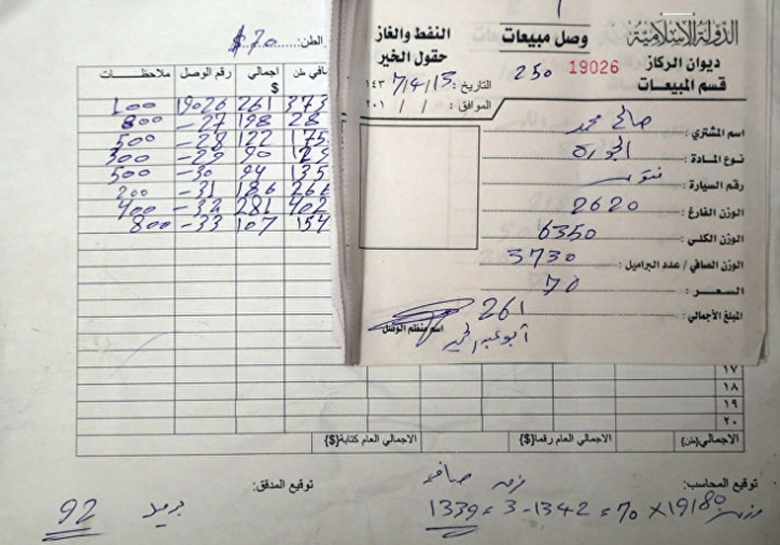 الدولة الإسلامية
ديوان الركاز
قسم المبيعات
وصل مبيعات
250 19026
النفط والغاز
حقول الخير
التاريخ : 15/4/7 ١٤٣
الموافق : / / ٢٠١
اسم المشتري : صالح محمد
نوع المادة :
رقم السيارة :
الوزن الفارغ : 2620
الوزن الكلي : 6350
الوزن الصافي / عدد البراميل : 3730
السعر : 70
المبلغ الأجمالي : 261
اسم منظم الوصل
الطن: $70
ملاحظات رقم الوصل اجمالي $ صافي طن
100 19026 261 373
800 -27 198 28
500 -28 122 175
300 -29 90 129
500 -30 94 135
200 -31 186 266
400 -32 281 402
800 -33 107 154
١٧
١٨
١٩
٢٠
الاجمالي (طن) الاجمالي العام رقما {$} الاجمالي العام كتابة {$}
توقيع المحاسب: توقيع المدقق:
وزن صافي
1339 = 3 - 1342 = 70 × 19180
92